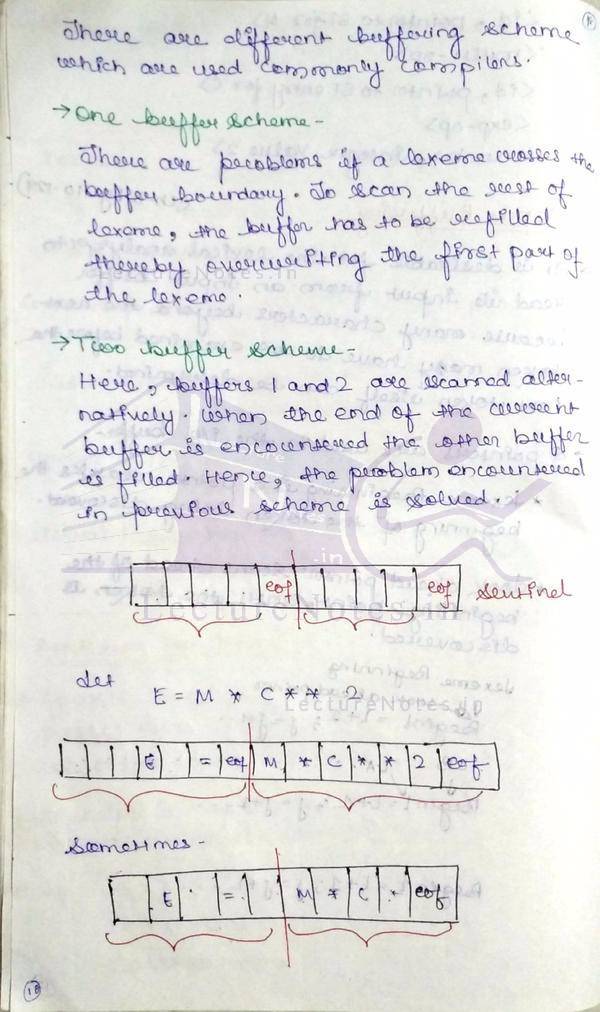 There are different buffering scheme
which are used commonly compilers.
→ One buffer scheme -
There are problems if a lexeme crosses the
buffer boundary. To scan the rest of
lexeme, the buffer has to be refilled
thereby overwriting the first part of
the lexeme.
LectureNotes.in
→ Two buffer scheme -
Here, buffers 1 and 2 are scanned alter-
natively. When the end of the current
buffer is encountered the other buffer
is filled. Hence, the problem encountered
in previous scheme is solved.
eof eof Sentinel
LectureNotes.in
Let
E = M * C * * 2
LectureNotes.in
E = eof M * C * * 2 eof
Sometimes -
E = M * C eof
18